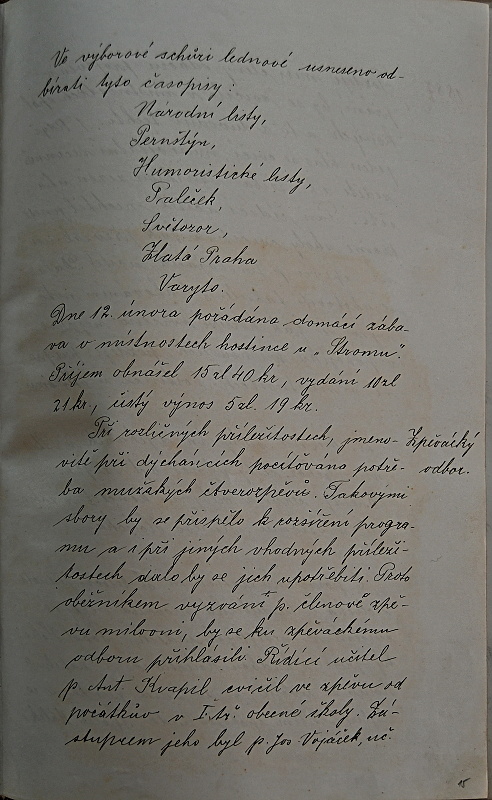 Ve výborové schůzi lednové usneseno od-
bírati tyto časopisy:
Národní listy,
Pernštýn,
Humoristické listy,
Paleček,
Světozor,
Zlatá Praha
Varyto.
Dne 12. února pořádána domácí zába-
va v místnostech hostince u „Stromu".
Příjem obnášel 15 zl 40 kr, vydání 10 zl
21 kr., čistý výnos 5 zl. 19 kr.
Při rozličných příležitostech, jmeno-
vitě při dýcháncích pociťována potře-
ba mužských čtverozpěvů. Takovými
sbory by se přispělo k rozšíření progra-
mu a i při jiných vhodných příleži-
tostech dalo by se jich upotřebiti. Proto
oběžníkem vyzváni p. členové zpě-
vu milovní, by se ku zpěváckému
odboru přihlásili. Řídící učitel
p. Ant. Kvapil cvičil ve zpěvu od
počátkův v I. tř. obecné školy. Zá-
stupcem jeho byl p. Jos Vojáček, uč.
Zpěvácký
odbor.
15